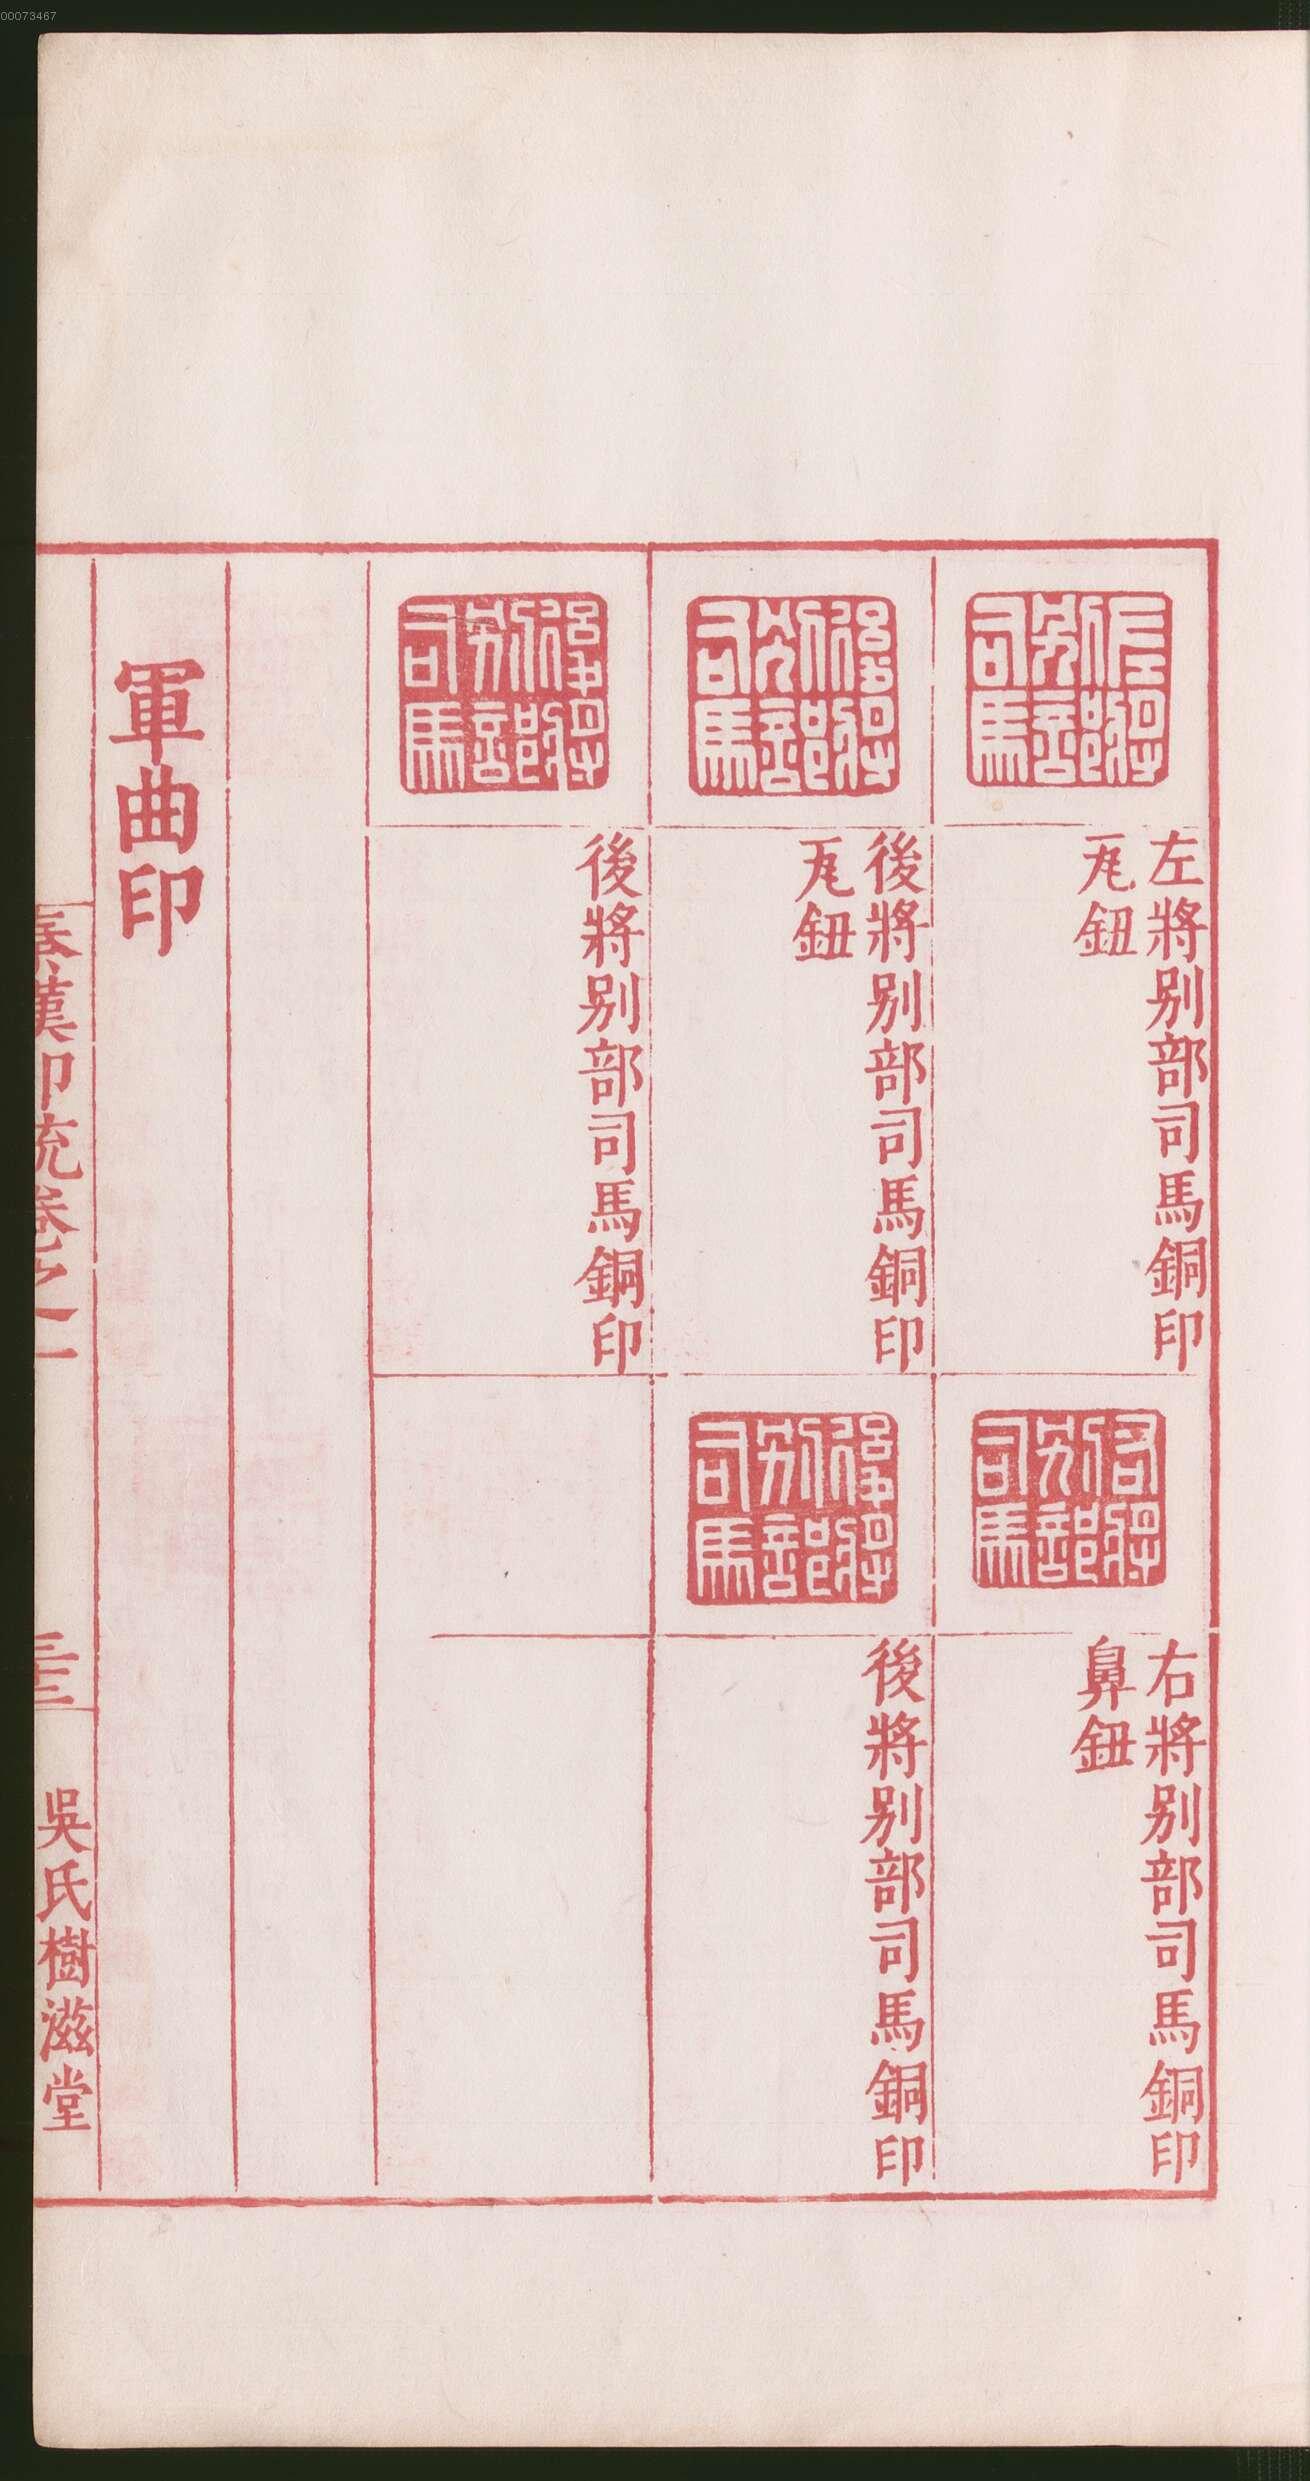 00073467
左將
別部
司馬
左將别部司馬銅印
瓦鈕
右將
別部
司馬
右將别部司馬銅印
鼻鈕
後將
別部
司馬
後將别部司馬銅印
瓦鈕
後將
別部
司馬
後將别部司馬銅印
後將
別部
司馬
後將别部司馬銅印
軍曲印
秦漢印統卷之一
吳氏樹滋堂